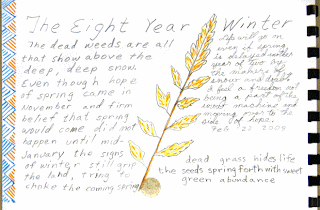 The Eight Year Winter
The dead weeds are all
that show above the
deep, deep snow.
Even though hope
of spring came in
November and firm
belief that spring
would come did not
happen until mid-
January the signs
of winter still grip
the land, trying to
choke the coming spring
Life will go on
even if spring
is delayed
year of two by
the makers of
snow and doubt
I feel a freedom of
being a part of the
machine and
moving over to the
side of hope.
Feb 21 2009
dead grass hides life
the seeds spring forth with sweet
green abundance